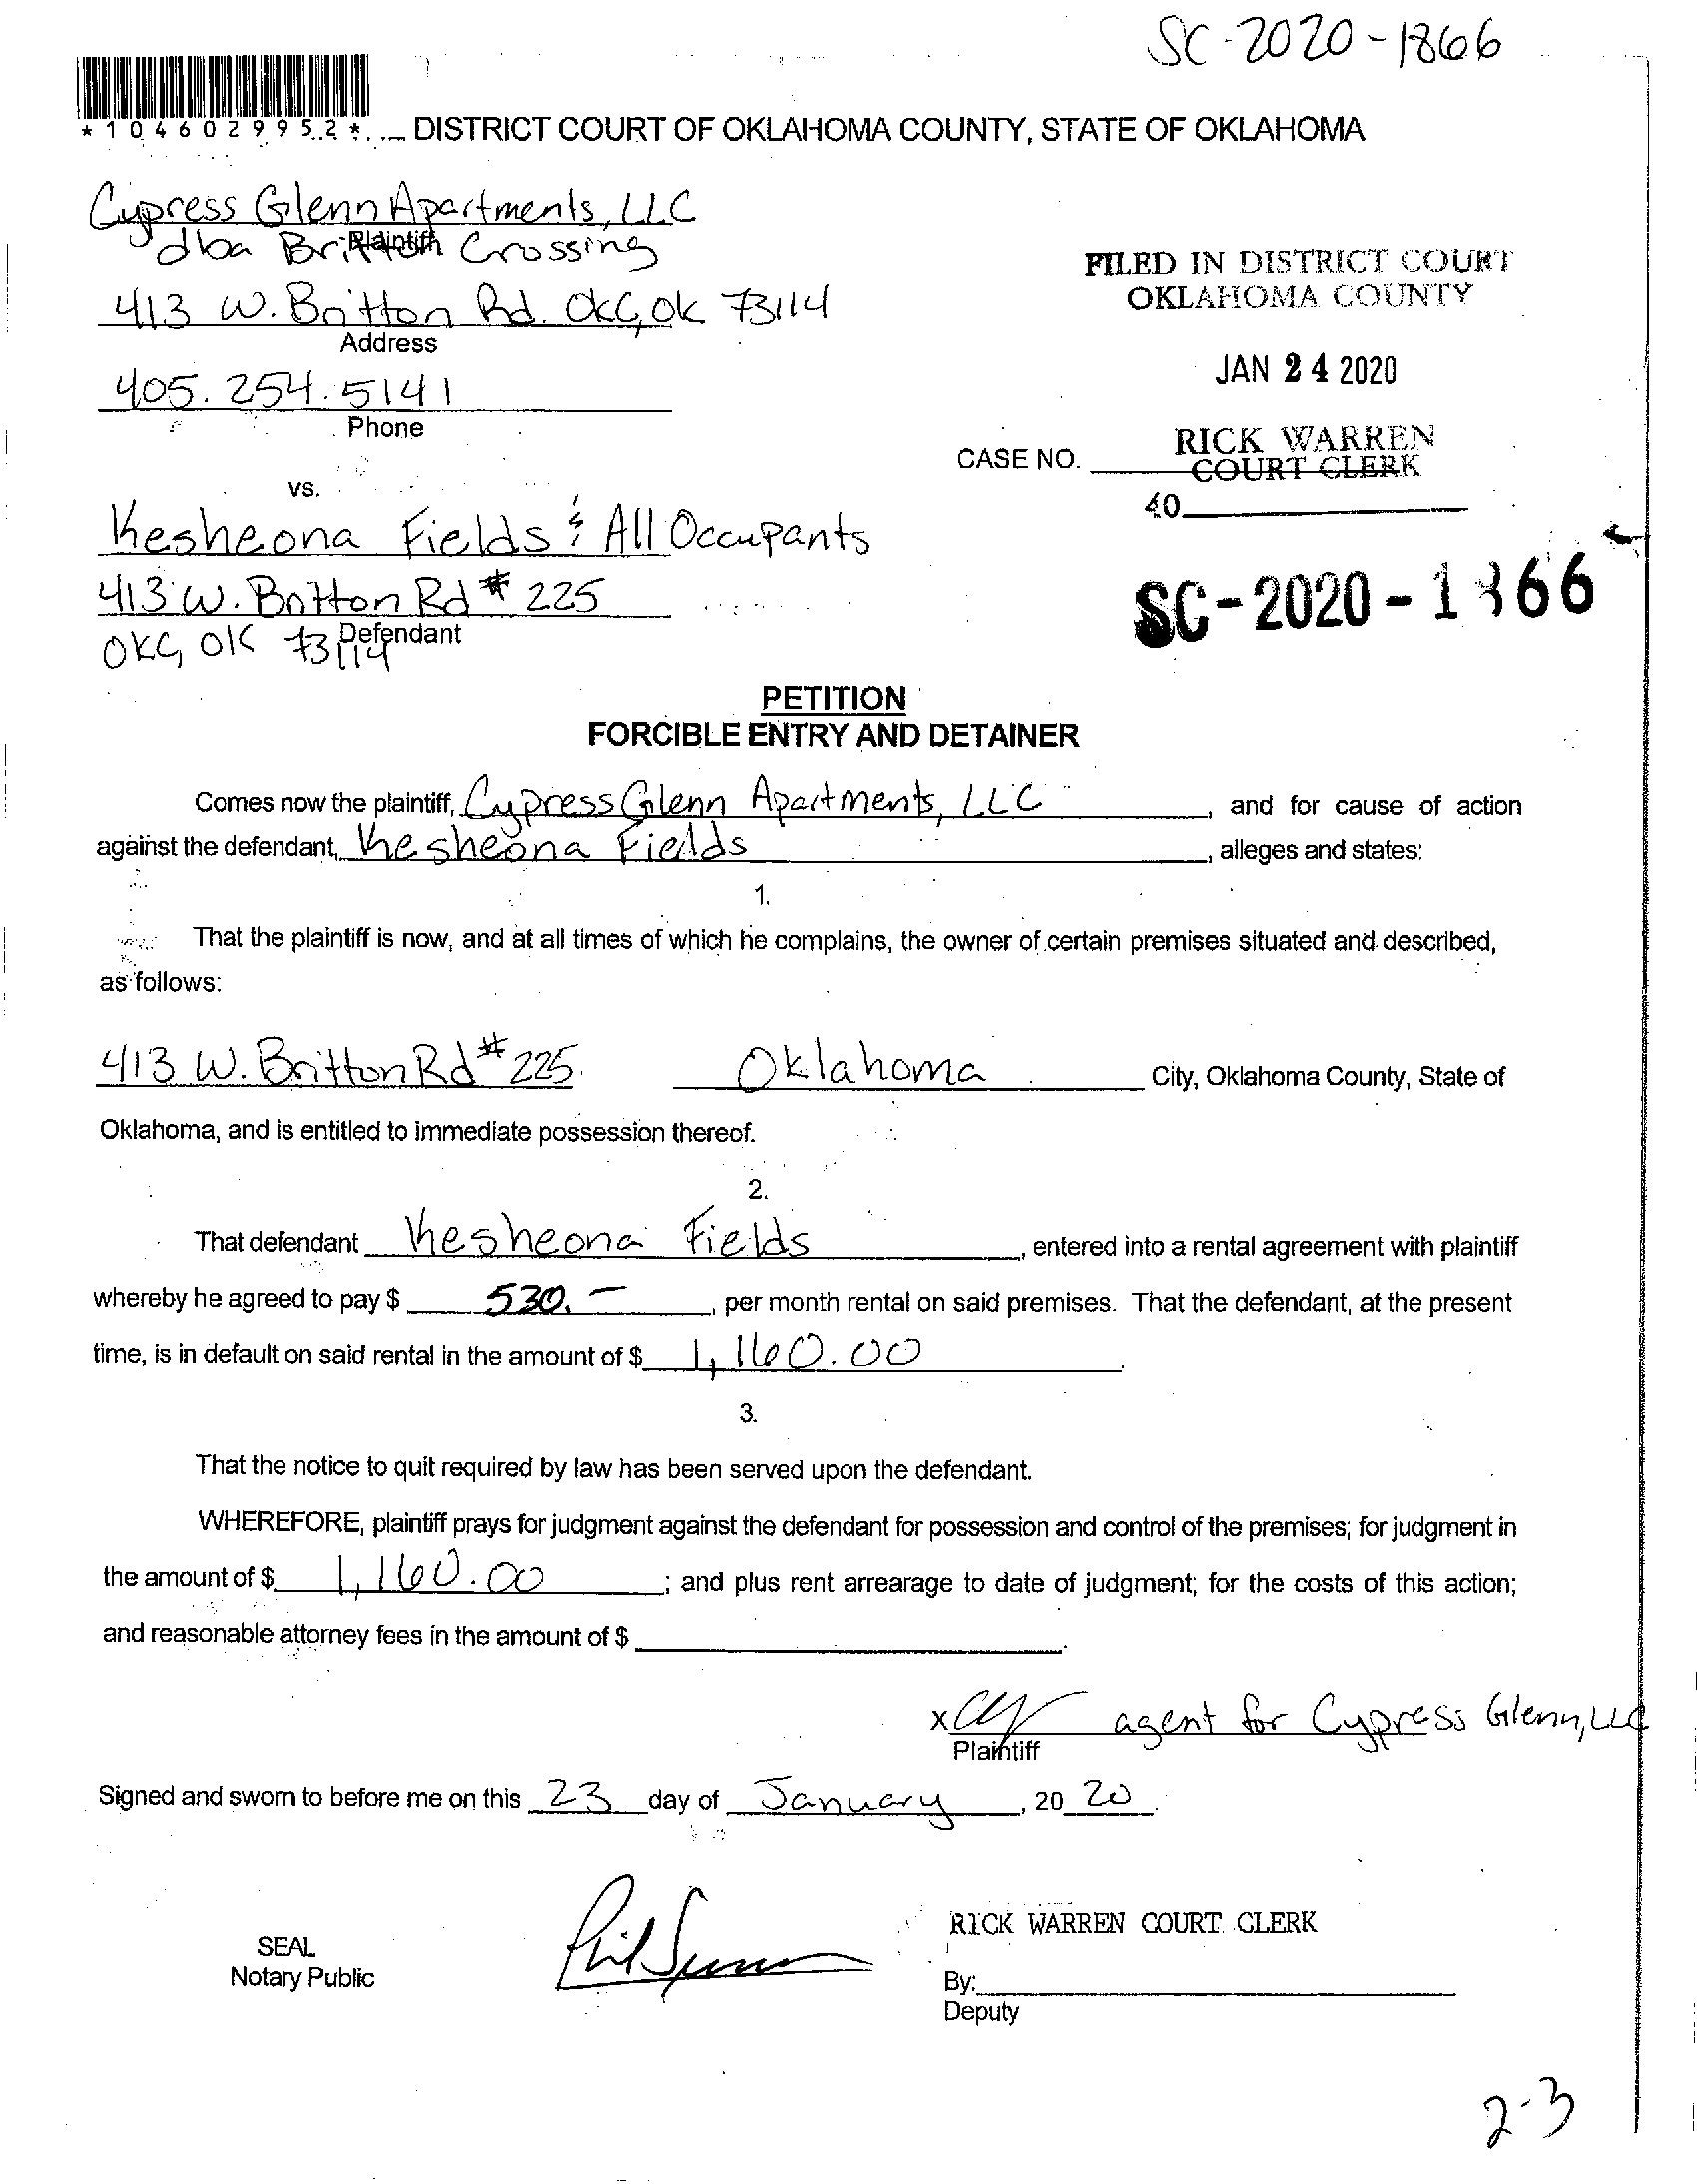 SC-2020-1866
*1046029952*
DISTRICT COURT OF OKLAHOMA COUNTY, STATE OF OKLAHOMA
Cypress Glenn Apartments, LLC
dba Britton Crossing
Plaintiff
413 W. Britton Rd. OKC, OK 73114
Address
405.254.5141
Phone
FILED IN DISTRICT COURT
OKLAHOMA COUNTY
JAN 24 2020
RICK WARREN
COURT CLERK
CASE NO.
40
vs.
Kesheona Fields & All Occupants
413 W. Britton Rd # 225
OKC, OK 73114
Defendant
SC-2020-1866
PETITION
FORCIBLE ENTRY AND DETAINER
Comes now the plaintiff, Cypress Glenn Apartments, LLC, and for cause of action
against the defendant, Kesheona Fields, alleges and states:
1.
That the plaintiff is now, and at all times of which he complains, the owner of certain premises situated and described,
as follows:
413 W. Britton Rd # 225 Oklahoma City, Oklahoma County, State of
Oklahoma, and is entitled to immediate possession thereof.
2.
That defendant Kesheona Fields, entered into a rental agreement with plaintiff
whereby he agreed to pay $ 530.—, per month rental on said premises. That the defendant, at the present
time, is in default on said rental in the amount of $ 1,160.00.
3.
That the notice to quit required by law has been served upon the defendant.
WHEREFORE, plaintiff prays for judgment against the defendant for possession and control of the premises; for judgment in
the amount of $ 1,160.00; and plus rent arrearage to date of judgment; for the costs of this action;
and reasonable attorney fees in the amount of $
x agent for Cypress Glenn, LLC
Plaintiff
Signed and sworn to before me on this 23 day of January, 2020.
RICK WARREN COURT CLERK
SEAL
Notary Public
By:
Deputy
2-3